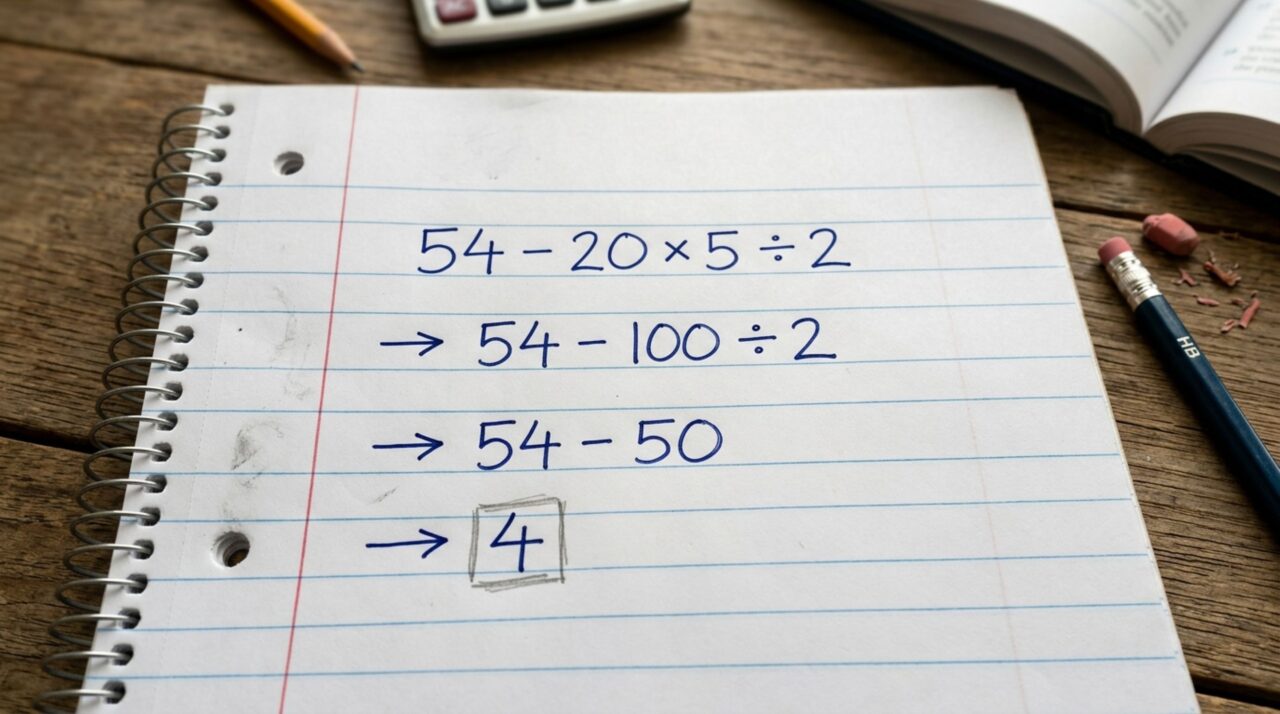 54 − 20 × 5 ÷ 2
→ 54 − 100 ÷ 2
→ 54 − 50
→ 4
HB